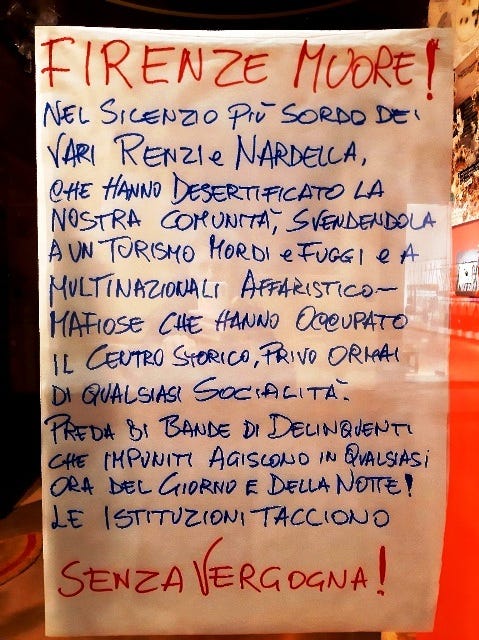 FIRENZE MUORE!
NEL SILENZIO PIÙ SORDO DEI
VARI RENZI e NARDELLA,
CHE HANNO DESERTIFICATO LA
NOSTRA COMUNITÀ, SVENDENDOLA
A UN TURISMO MORDI e FUGGI e A
MULTINAZIONALI AFFARISTICO-
MAFIOSE CHE HANNO OCCUPATO
IL CENTRO STORICO, PRIVO ORMAI
DI QUALSIASI SOCIALITÀ.
PREDA DI BANDE DI DELINQUENTI
CHE IMPUNITI AGISCONO IN QUALSIASI
ORA DEL GIORNO E DELLA NOTTE!
LE ISTITUZIONI TACCIONO
SENZA VERGOGNA!